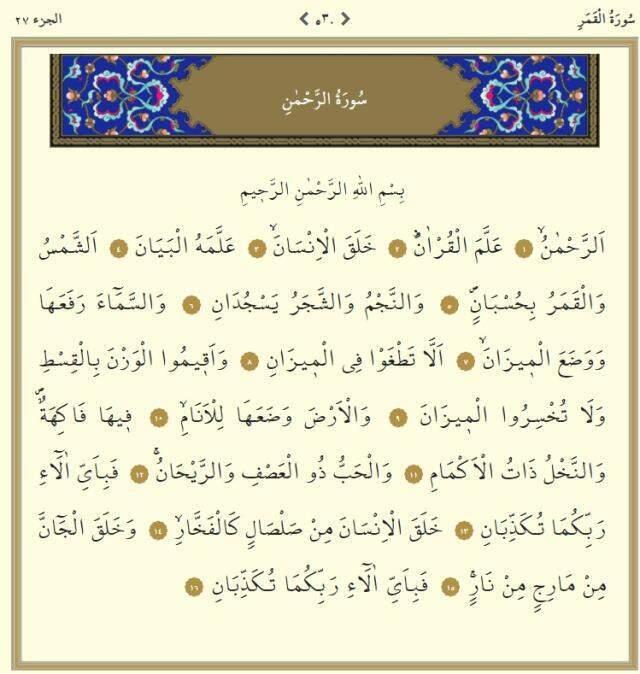 سُورَةُ الْقَمَرِ ٥٣٠ الجزء ٢٧
سُورَةُ الرَّحْمٰنِ
بِسْمِ اللهِ الرَّحْمٰنِ الرَّح۪يمِ
اَلرَّحْمٰنُۙ ١ عَلَّمَ الْقُرْاٰنَۜ ٢ خَلَقَ الْاِنْسَانَۙ ٣ عَلَّمَهُ الْبَيَانَ ٤ اَلشَّمْسُ
وَالْقَمَرُ بِحُسْبَانٍۖ ٥ وَالنَّجْمُ وَالشَّجَرُ يَسْجُدَانِ ٦ وَالسَّمَٓاءَ رَفَعَهَا
وَوَضَعَ الْم۪يزَانَۙ ٧ اَلَّا تَطْغَوْا فِي الْم۪يزَانِ ٨ وَاَق۪يمُوا الْوَزْنَ بِالْقِسْطِ
وَلَا تُخْسِرُوا الْم۪يزَانَ ٩ وَالْاَرْضَ وَضَعَهَا لِلْاَنَامِۙ ١٠ ف۪يهَا فَاكِهَةٌۖ
وَالنَّخْلُ ذَاتُ الْاَكْمَامِ ١١ وَالْحَبُّ ذُو الْعَصْفِ وَالرَّيْحَانُۚ ١٢ فَبِاَيِّ اٰلَٓاءِ
رَبِّكُمَا تُكَذِّبَانِ ١٣ خَلَقَ الْاِنْسَانَ مِنْ صَلْصَالٍ كَالْفَخَّارِۙ ١٤ وَخَلَقَ الْجَٓانَّ
مِنْ مَارِجٍ مِنْ نَارٍۚ ١٥ فَبِاَيِّ اٰلَٓاءِ رَبِّكُمَا تُكَذِّبَانِ ١٦